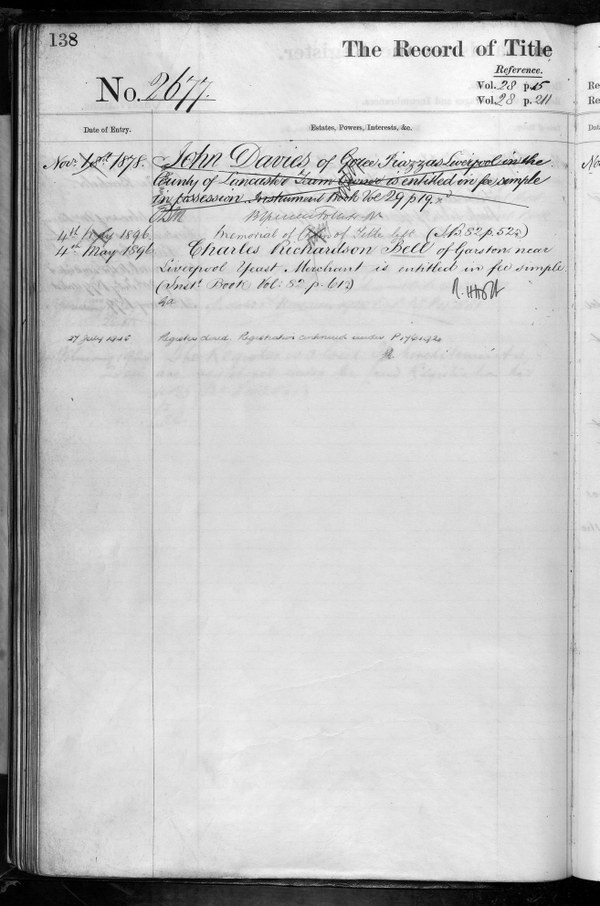 138
The Record of Title
Reference.
No. 2677.
Vol. 28 p. 15
Vol. 28 p. 211
Date of Entry.
Estates, Powers, Interests, &c.
Novr. 1878. John Davies of Goree Piazzas Liverpool in the
County of Lancaster Team Owner is entitled in fee simple
in possession Instrument Book Vol 29 p 19.
4th May 1896 Memorial of of Title left (I.B. 52 p. 525)
4th May 1896 Charles Richardson Bell of Garston near
Liverpool Yeast Merchant is entitled in fee simple.
(Inst. Book Vol: 52 p.
27 July Register closed. Registration continued under P